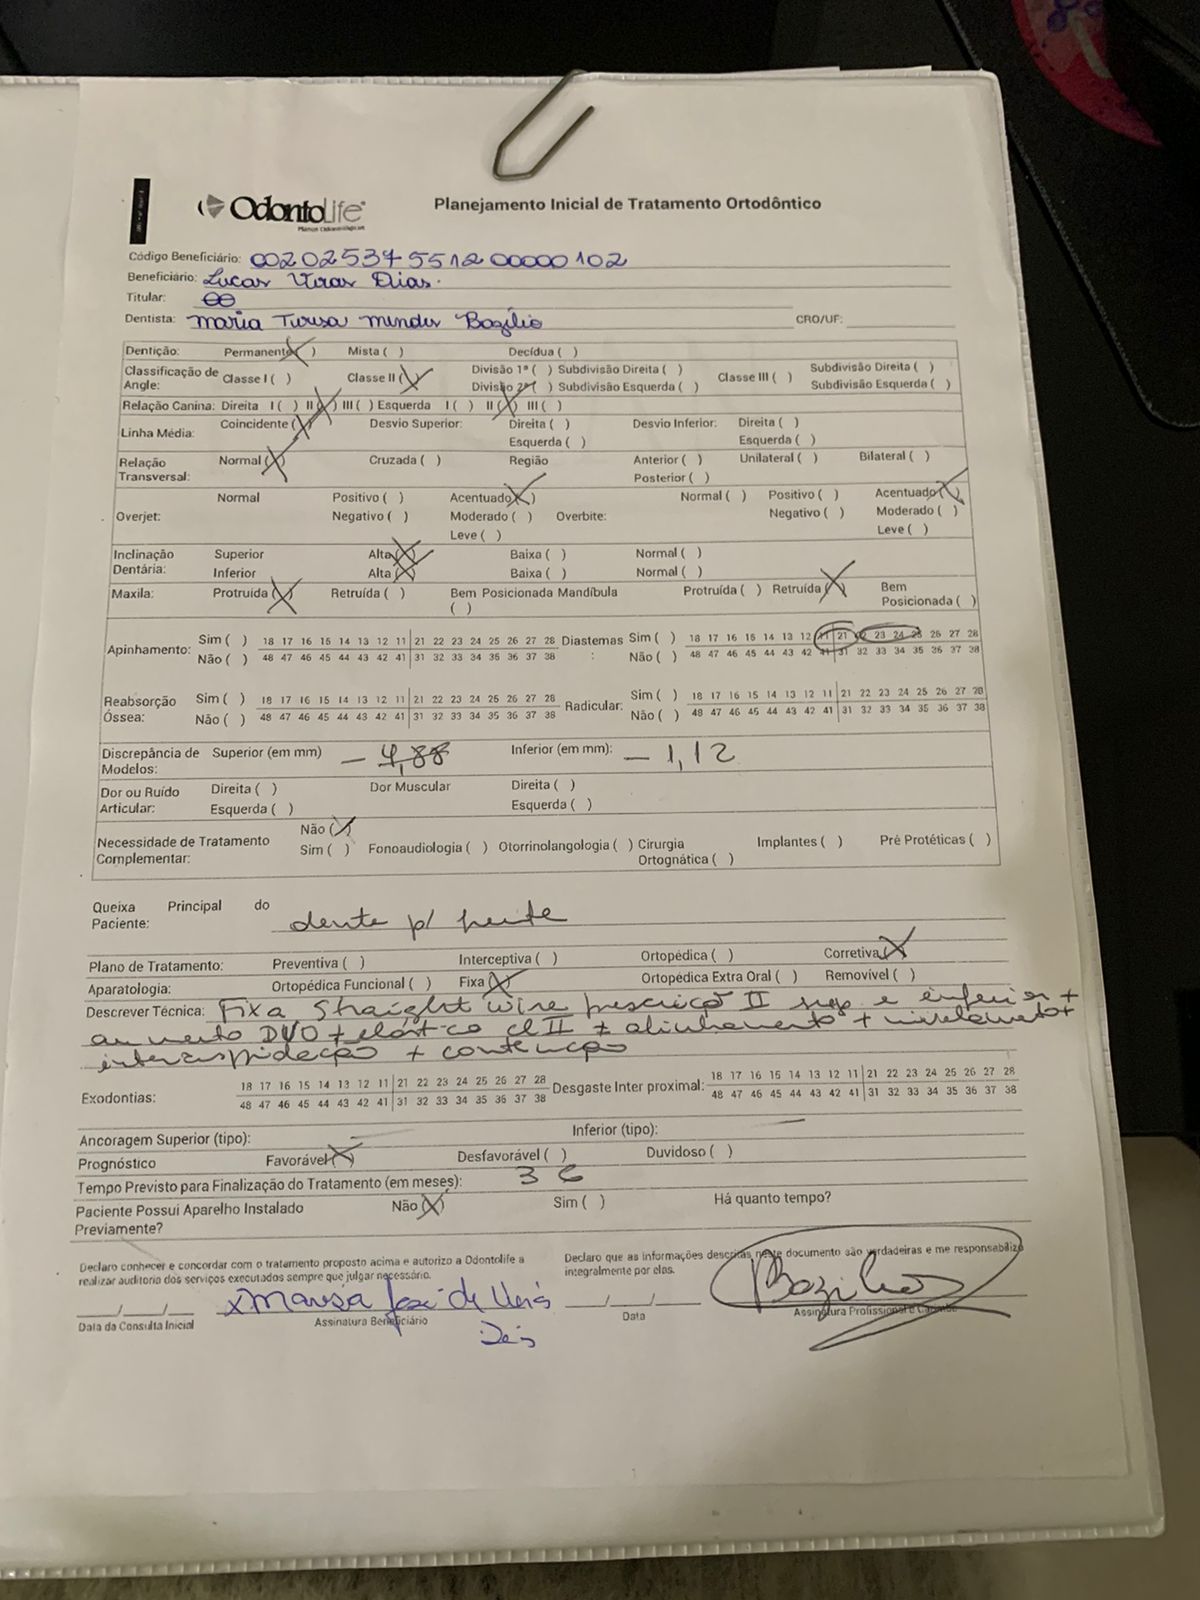 OdontoLife
Planos Odontológicos
Planejamento Inicial de Tratamento Ortodôntico
Código Beneficiário: 00202534551200000102
Beneficiário: Lucas Veras Dias.
Titular:
Dentista: Maria Teresa Mendes Bozílio CRO/UF:
Dentição: Permanente (X) Mista ( ) Decídua ( )
Classificação de Angle: Classe I ( ) Classe II (X) Divisão 1ª ( ) Subdivisão Direita ( ) Classe III ( ) Subdivisão Direita ( )
Divisão 2ª ( ) Subdivisão Esquerda ( ) Subdivisão Esquerda ( )
Relação Canina: Direita I ( ) II (X) III ( ) Esquerda I ( ) II (X) III ( )
Linha Média: Coincidente (X) Desvio Superior: Direita ( ) Desvio Inferior: Direita ( )
Esquerda ( ) Esquerda ( )
Relação Transversal: Normal (X) Cruzada ( ) Região Anterior ( ) Unilateral ( ) Bilateral ( )
Posterior ( )
Overjet: Normal Positivo ( ) Acentuado (X) Normal ( ) Positivo ( ) Acentuado (X)
Negativo ( ) Moderado ( ) Overbite: Negativo ( ) Moderado ( )
Leve ( ) Leve ( )
Inclinação Dentária: Superior Alta (X) Baixa ( ) Normal ( )
Inferior Alta (X) Baixa ( ) Normal ( )
Maxila: Protruída (X) Retruída ( ) Bem Posicionada ( ) Mandíbula Protruída ( ) Retruída (X) Bem Posicionada ( )
Apinhamento: Sim ( ) 18 17 16 15 14 13 12 11 21 22 23 24 25 26 27 28 Diastemas: Sim ( ) 18 17 16 15 14 13 12 11 21 22 23 24 25 26 27 28
Não ( ) 48 47 46 45 44 43 42 41 31 32 33 34 35 36 37 38 Não ( ) 48 47 46 45 44 43 42 41 31 32 33 34 35 36 37 38
Reabsorção Óssea: Sim ( ) 18 17 16 15 14 13 12 11 21 22 23 24 25 26 27 28 Radicular: Sim ( ) 18 17 16 15 14 13 12 11 21 22 23 24 25 26 27 28
Não ( ) 48 47 46 45 44 43 42 41 31 32 33 34 35 36 37 38 Não ( ) 48 47 46 45 44 43 42 41 31 32 33 34 35 36 37 38
Discrepância de Modelos: Superior (em mm) - 4,88 Inferior (em mm): - 1,12
Dor ou Ruído Articular: Direita ( ) Dor Muscular Direita ( )
Esquerda ( ) Esquerda ( )
Necessidade de Tratamento Complementar: Não (X)
Sim ( ) Fonoaudiologia ( ) Otorrinolangologia ( ) Cirurgia Ortognática ( ) Implantes ( ) Pré Protéticas ( )
Queixa Principal do Paciente: dente p/ frente
Plano de Tratamento: Preventiva ( ) Interceptiva ( ) Ortopédica ( ) Corretiva (X)
Aparatologia: Ortopédica Funcional ( ) Fixa (X) Ortopédica Extra Oral ( ) Removível ( )
Descrever Técnica: Fixa Straight wire prescrição II sup e inferior +
aumento DVO + elástico cl II + alinhamento + nivelamento +
intercuspidação + contenção
Exodontias: 18 17 16 15 14 13 12 11 21 22 23 24 25 26 27 28 Desgaste Inter proximal: 18 17 16 15 14 13 12 11 21 22 23 24 25 26 27 28
48 47 46 45 44 43 42 41 31 32 33 34 35 36 37 38 48 47 46 45 44 43 42 41 31 32 33 34 35 36 37 38
Ancoragem Superior (tipo): — Inferior (tipo): —
Prognóstico Favorável (X) Desfavorável ( ) Duvidoso ( )
Tempo Previsto para Finalização do Tratamento (em meses): 36
Paciente Possui Aparelho Instalado Previamente? Não (X) Sim ( ) Há quanto tempo?
Declaro conhecer e concordar com o tratamento proposto acima e autorizo a Odontolife a
realizar auditoria dos serviços executados sempre que julgar necessário.
Declaro que as informações descritas neste documento são verdadeiras e me responsabilizo
integralmente por elas.
__/__/__ x Marisa José de Veras Dias __/__/__ Bozilio
Data da Consulta Inicial Assinatura Beneficiário Data Assinatura Profissional e Carimbo